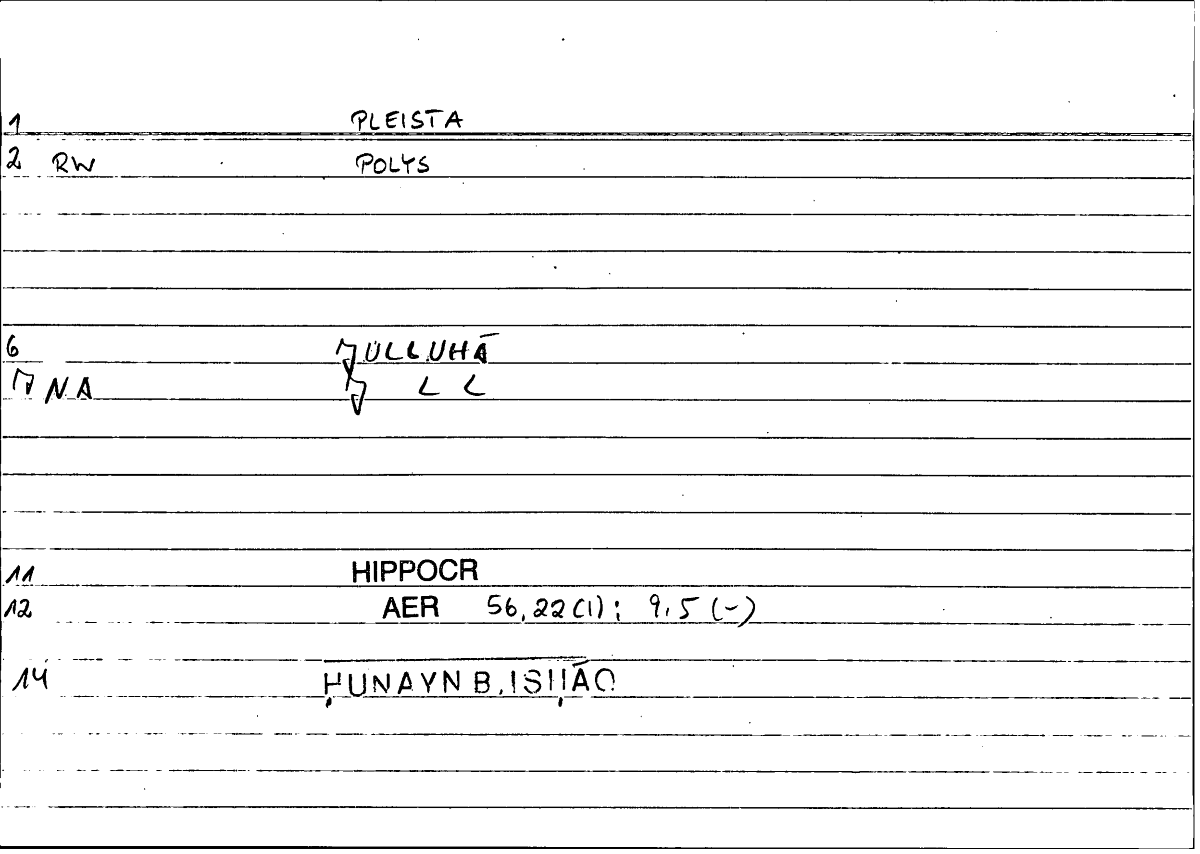 1 PLEISTA
2 RW POLYS
6 ǦULLUHĀ
7 NA Ǧ L L
11 HIPPOCR
12 AER 56,22(1); 9,5 (-)
14 ḤUNAYN B.ISḤĀQ